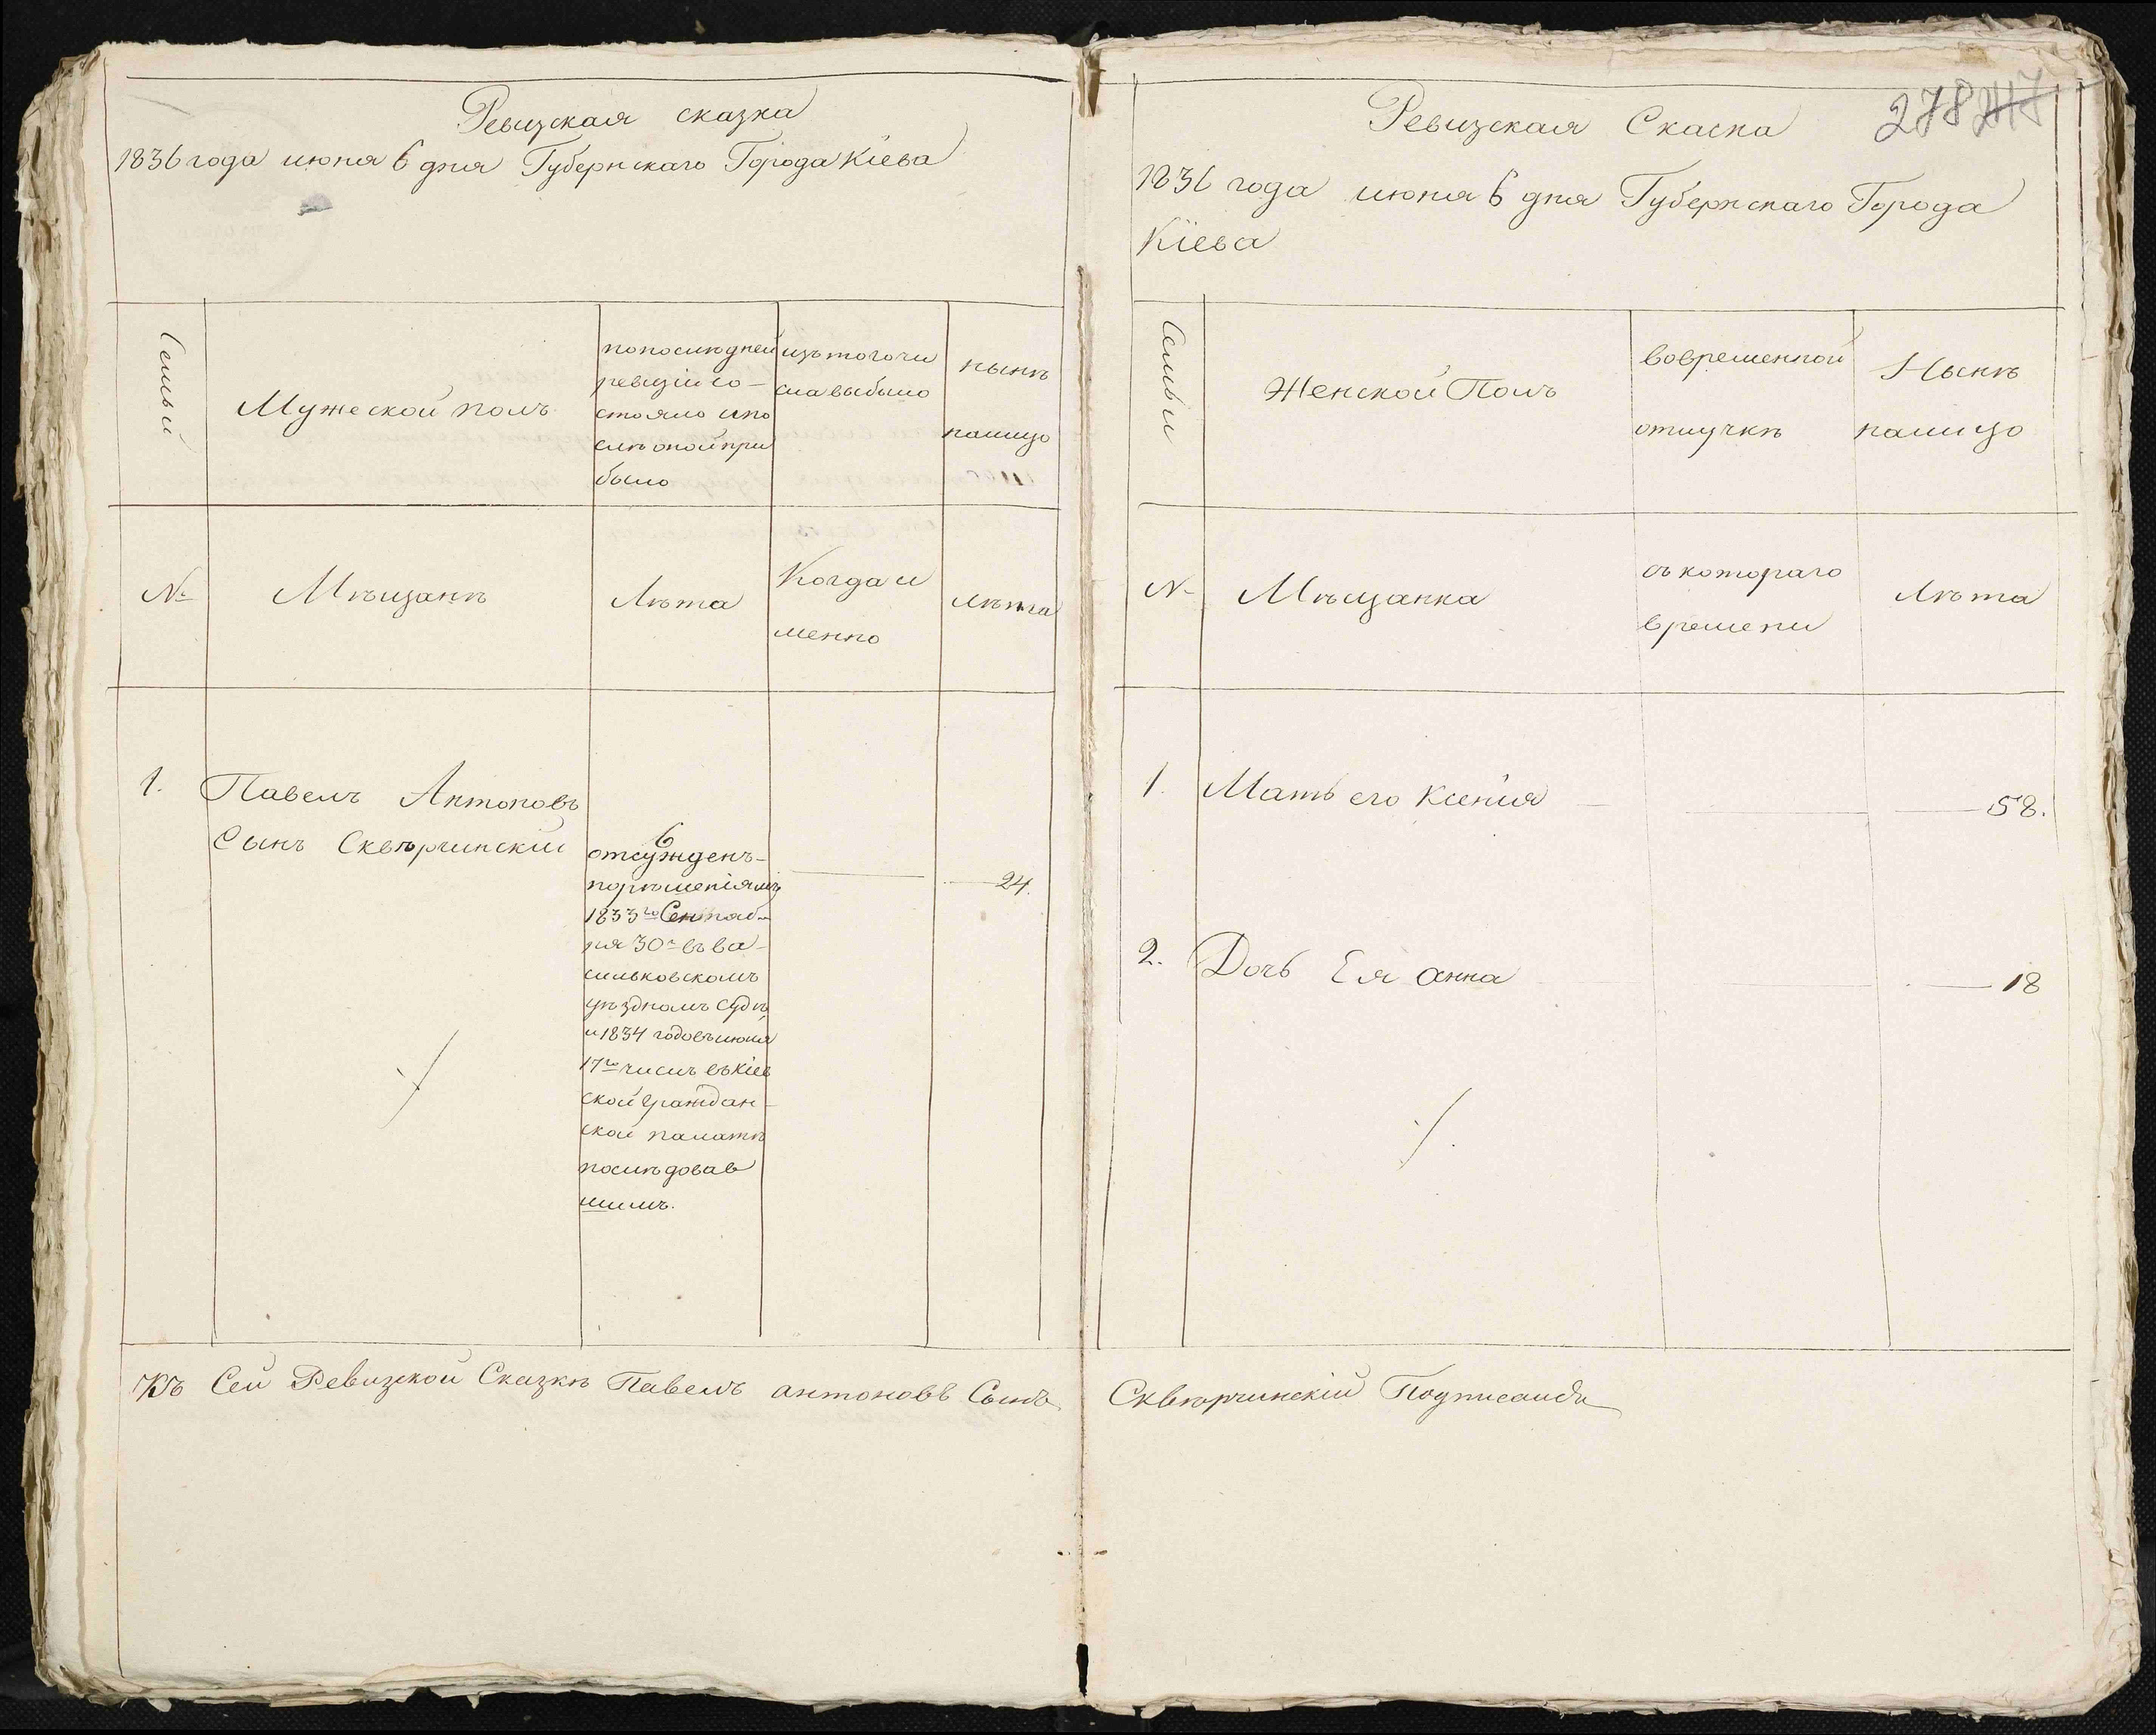 Ревизская сказка
1836 года июня 6 дня Губернскаго Города Кіева
Семьи
Мужеской полъ
попоследней
ревизіи со-
стояло и по
слѣ оной при
было
изъ того чи
сла выбыло
нынѣ
налицо
№
Мѣщанѣ
Лѣта
Когда и
менно
лѣта
1.
Павелъ Антоновъ
Сынъ Сквѣрчинскій
6
отсужденъ-
порѣшеніямъ
1833го Сентяб-
ря 30го въ Ва-
сильковскомъ
уѣздномъ судѣ,
и 1834 годовъ июня
17го числъ въ Кіев
ской Граждан-
ской палатѣ
послѣдовав
шимъ.
24.
Къ Сей Ревизской Сказкѣ Павелъ антоновъ Сынъ
278
Ревизская Скаска
1836 года июня 6 дня Губернскаго Города
Кіева
Семьи
Женской Полъ
вовременной
отлучкѣ
Нынѣ
налицо
№
Мѣщанка
съ котораго
времени
Лѣта
1.
Мать его Ксенія
58.
2.
Дочь Ея Анна
18
Сквѣрчинскій Подписался